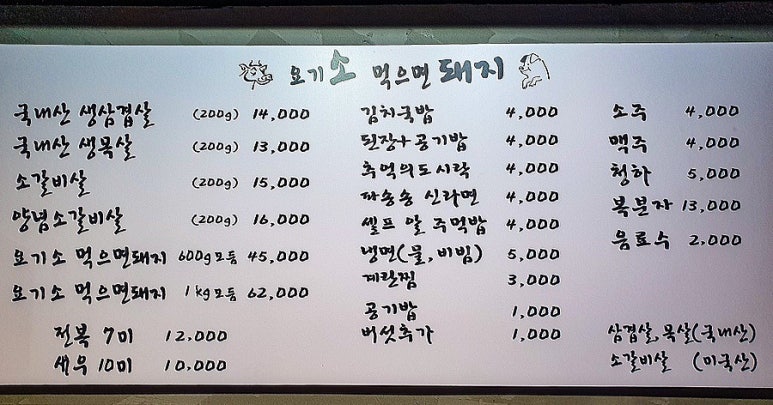 요기 소 먹으면 돼지
국내산 생삼겹살 (200g) 14,000
국내산 생목살 (200g) 13,000
소갈비살 (200g) 15,000
양념소갈비살 (200g) 16,000
요기소 먹으면돼지 600g모듬 45,000
요기소 먹으면돼지 1kg모듬 62,000
전복 7미 12,000
새우 10미 10,000
김치국밥 4,000
된장+공기밥 4,000
추억의도시락 4,000
파송송 신라면 4,000
셀프 알 주먹밥 4,000
냉면(물,비빔) 5,000
계란찜 3,000
공기밥 1,000
버섯추가 1,000
소주 4,000
맥주 4,000
청하 5,000
복분자 13,000
음료수 2,000
삼겹살,목살(국내산)
소갈비살 (미국산)